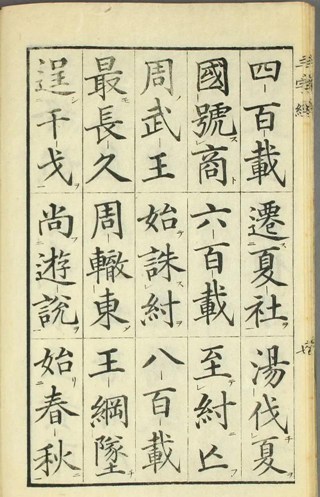 四百載遷夏社湯伐夏
國號商六百載至紂亾
周武王始誅紂八百載
最長久周轍東王綱墜
逞干戈尚遊說始春秋